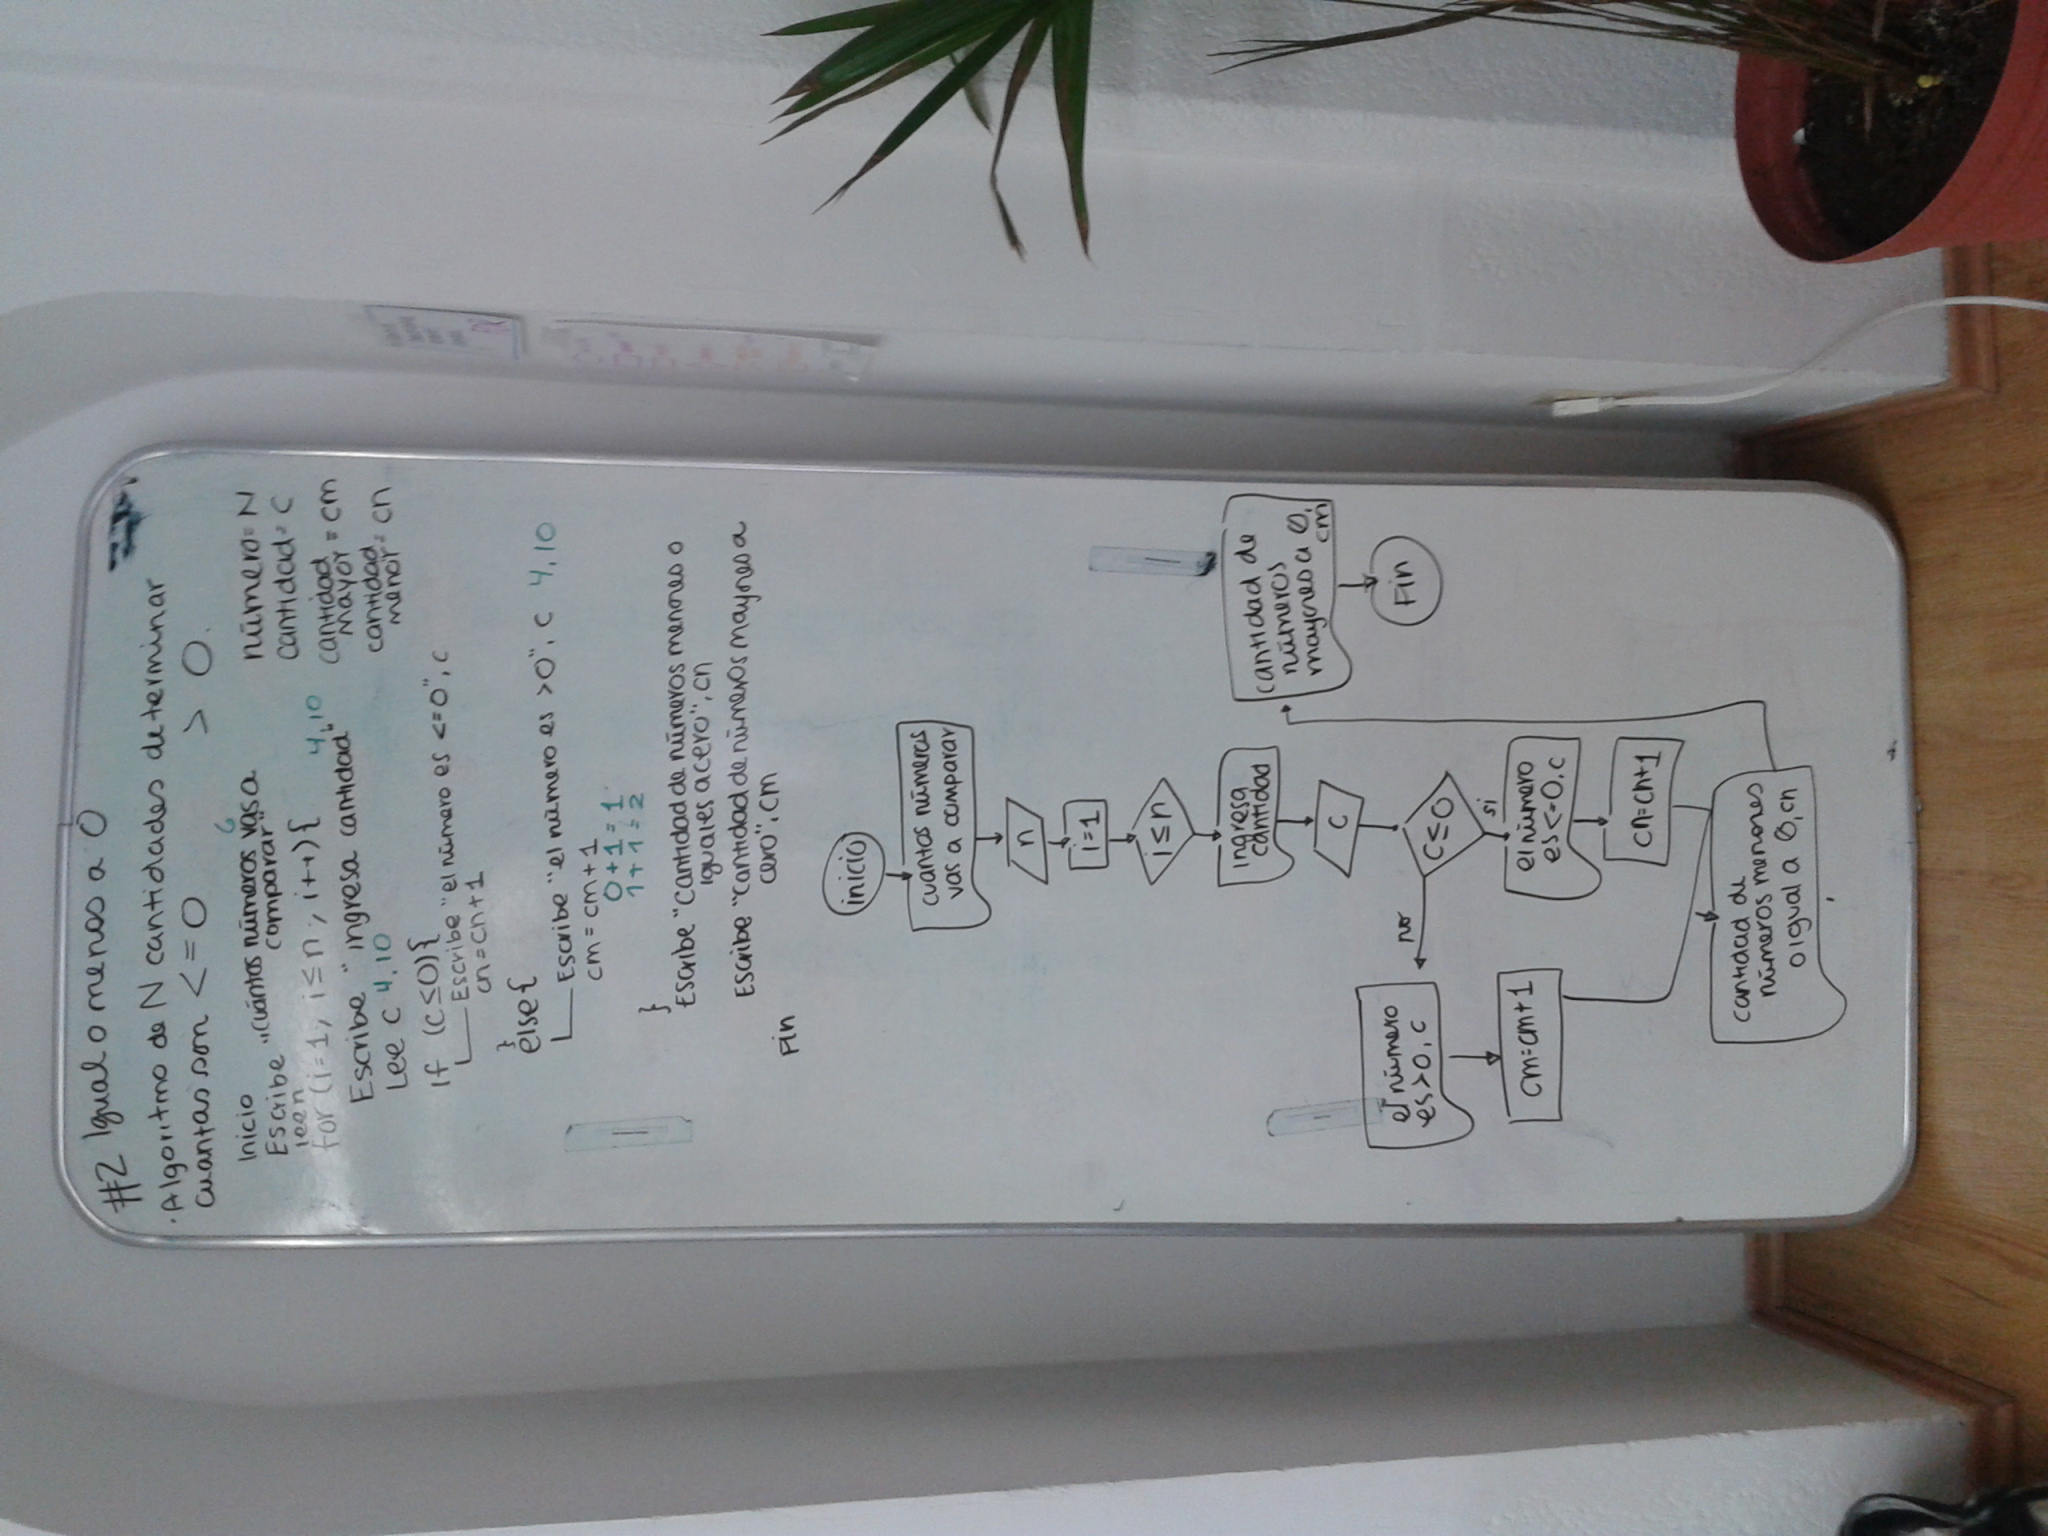 #2 Igual o menos a 0
·Algoritmo de N cantidades determinar
cuantas son <=0 > 0.
Inicio
6
Escribe "cuántos números vas a
comparar"
leen
for (i=1, i≤n, i++){
4,10
Escribe "ingresa cantidad"
Lee c 4,10
If (c≤0){
Escribe "el número es <=0", c
cn=cn+1
}
else{
Escribe "el número es >0", c 4,10
cm=cm+1
0+1=1
1+1=2
}
Escribe "Cantidad de números menores o
iguales a cero", cn
Escribe "Cantidad de números mayores a
cero", cm
Fin
número=N
cantidad=C
cantidad
mayor = cm
cantidad
menor = cn
inicio
cuantos números
vas a comparar
n
i=1
i≤n
ingresa
cantidad
c
c≤0
no
el número
es>0, c
cm=cm+1
si
el número
es<=0, c
cn=cn+1
cantidad de
números menores
o igual a 0, cn
cantidad de
números
mayores a 0,
cm
Fin